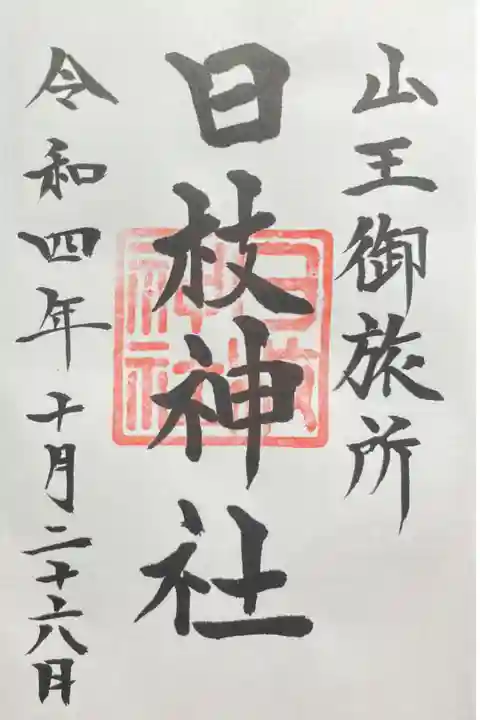 山王御旅所
日枝神社
日枝
神社
令和四年十月二十六日